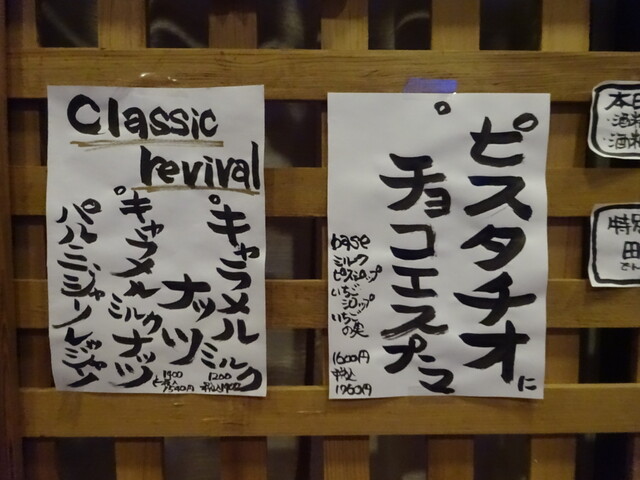 Classic
revival
゜キャラメル
ナッツミルク
゜キャラメルミルクナッツ
パルミジャーノレッジャーノ
1200
1400
゜ピスタチオに
チョコエスプーマ
base
ミルク
いちご
シロップ
いちご
の実
1600円
税込
1760円
本日
酒粕
酒粕
特別